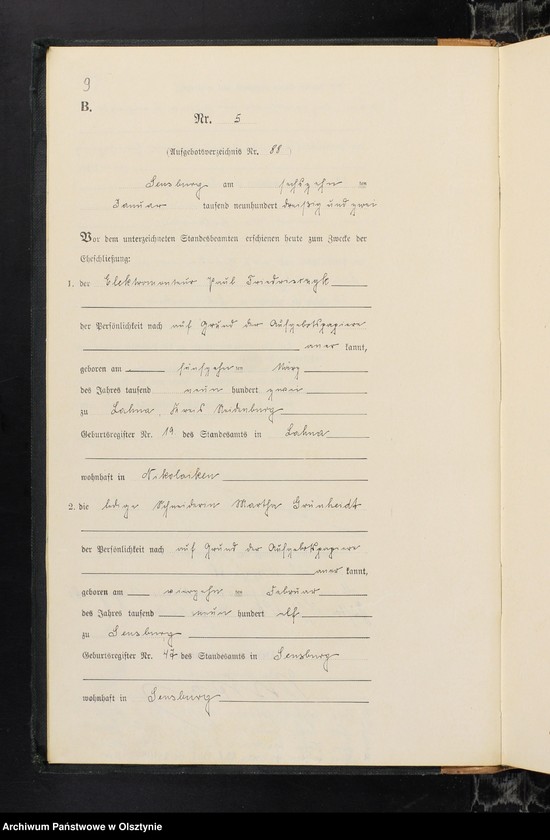 9
B.
Nr. 5
(Aufgebotsverzeichnis Nr. 88)
Sensburg am sechszehn ten
Januar tausend neunhundert dreißig und zwei
Vor dem unterzeichneten Standesbeamten erschienen heute zum Zwecke der
Eheschließung:
1. der Elektromonteur Paul Friedriszyk
der Persönlichkeit nach auf Grund der Aufgebotspapiere
aner kannt,
geboren am fünfzehn ten März
des Jahres tausend neun hundert zwei
zu Lahna, Kreis Neidenburg
Geburtsregister Nr. 19 des Standesamts in Lahna
wohnhaft in Nikolaiken
2. die ledige Schneiderin Martha Grünheidt
der Persönlichkeit nach auf Grund der Aufgebotspapiere
aner kannt,
geboren am vierzehn ten Februar
des Jahres tausend neun hundert elf
zu Sensburg
Geburtsregister Nr. 47 des Standesamts in Sensburg
wohnhaft in Sensburg
Archiwum Państwowe w Olsztynie